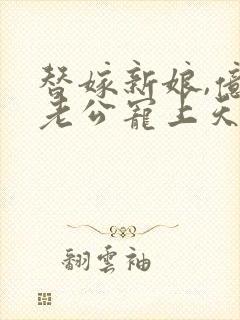 替嫁新娘,億
老公寵上天
翻雲袖